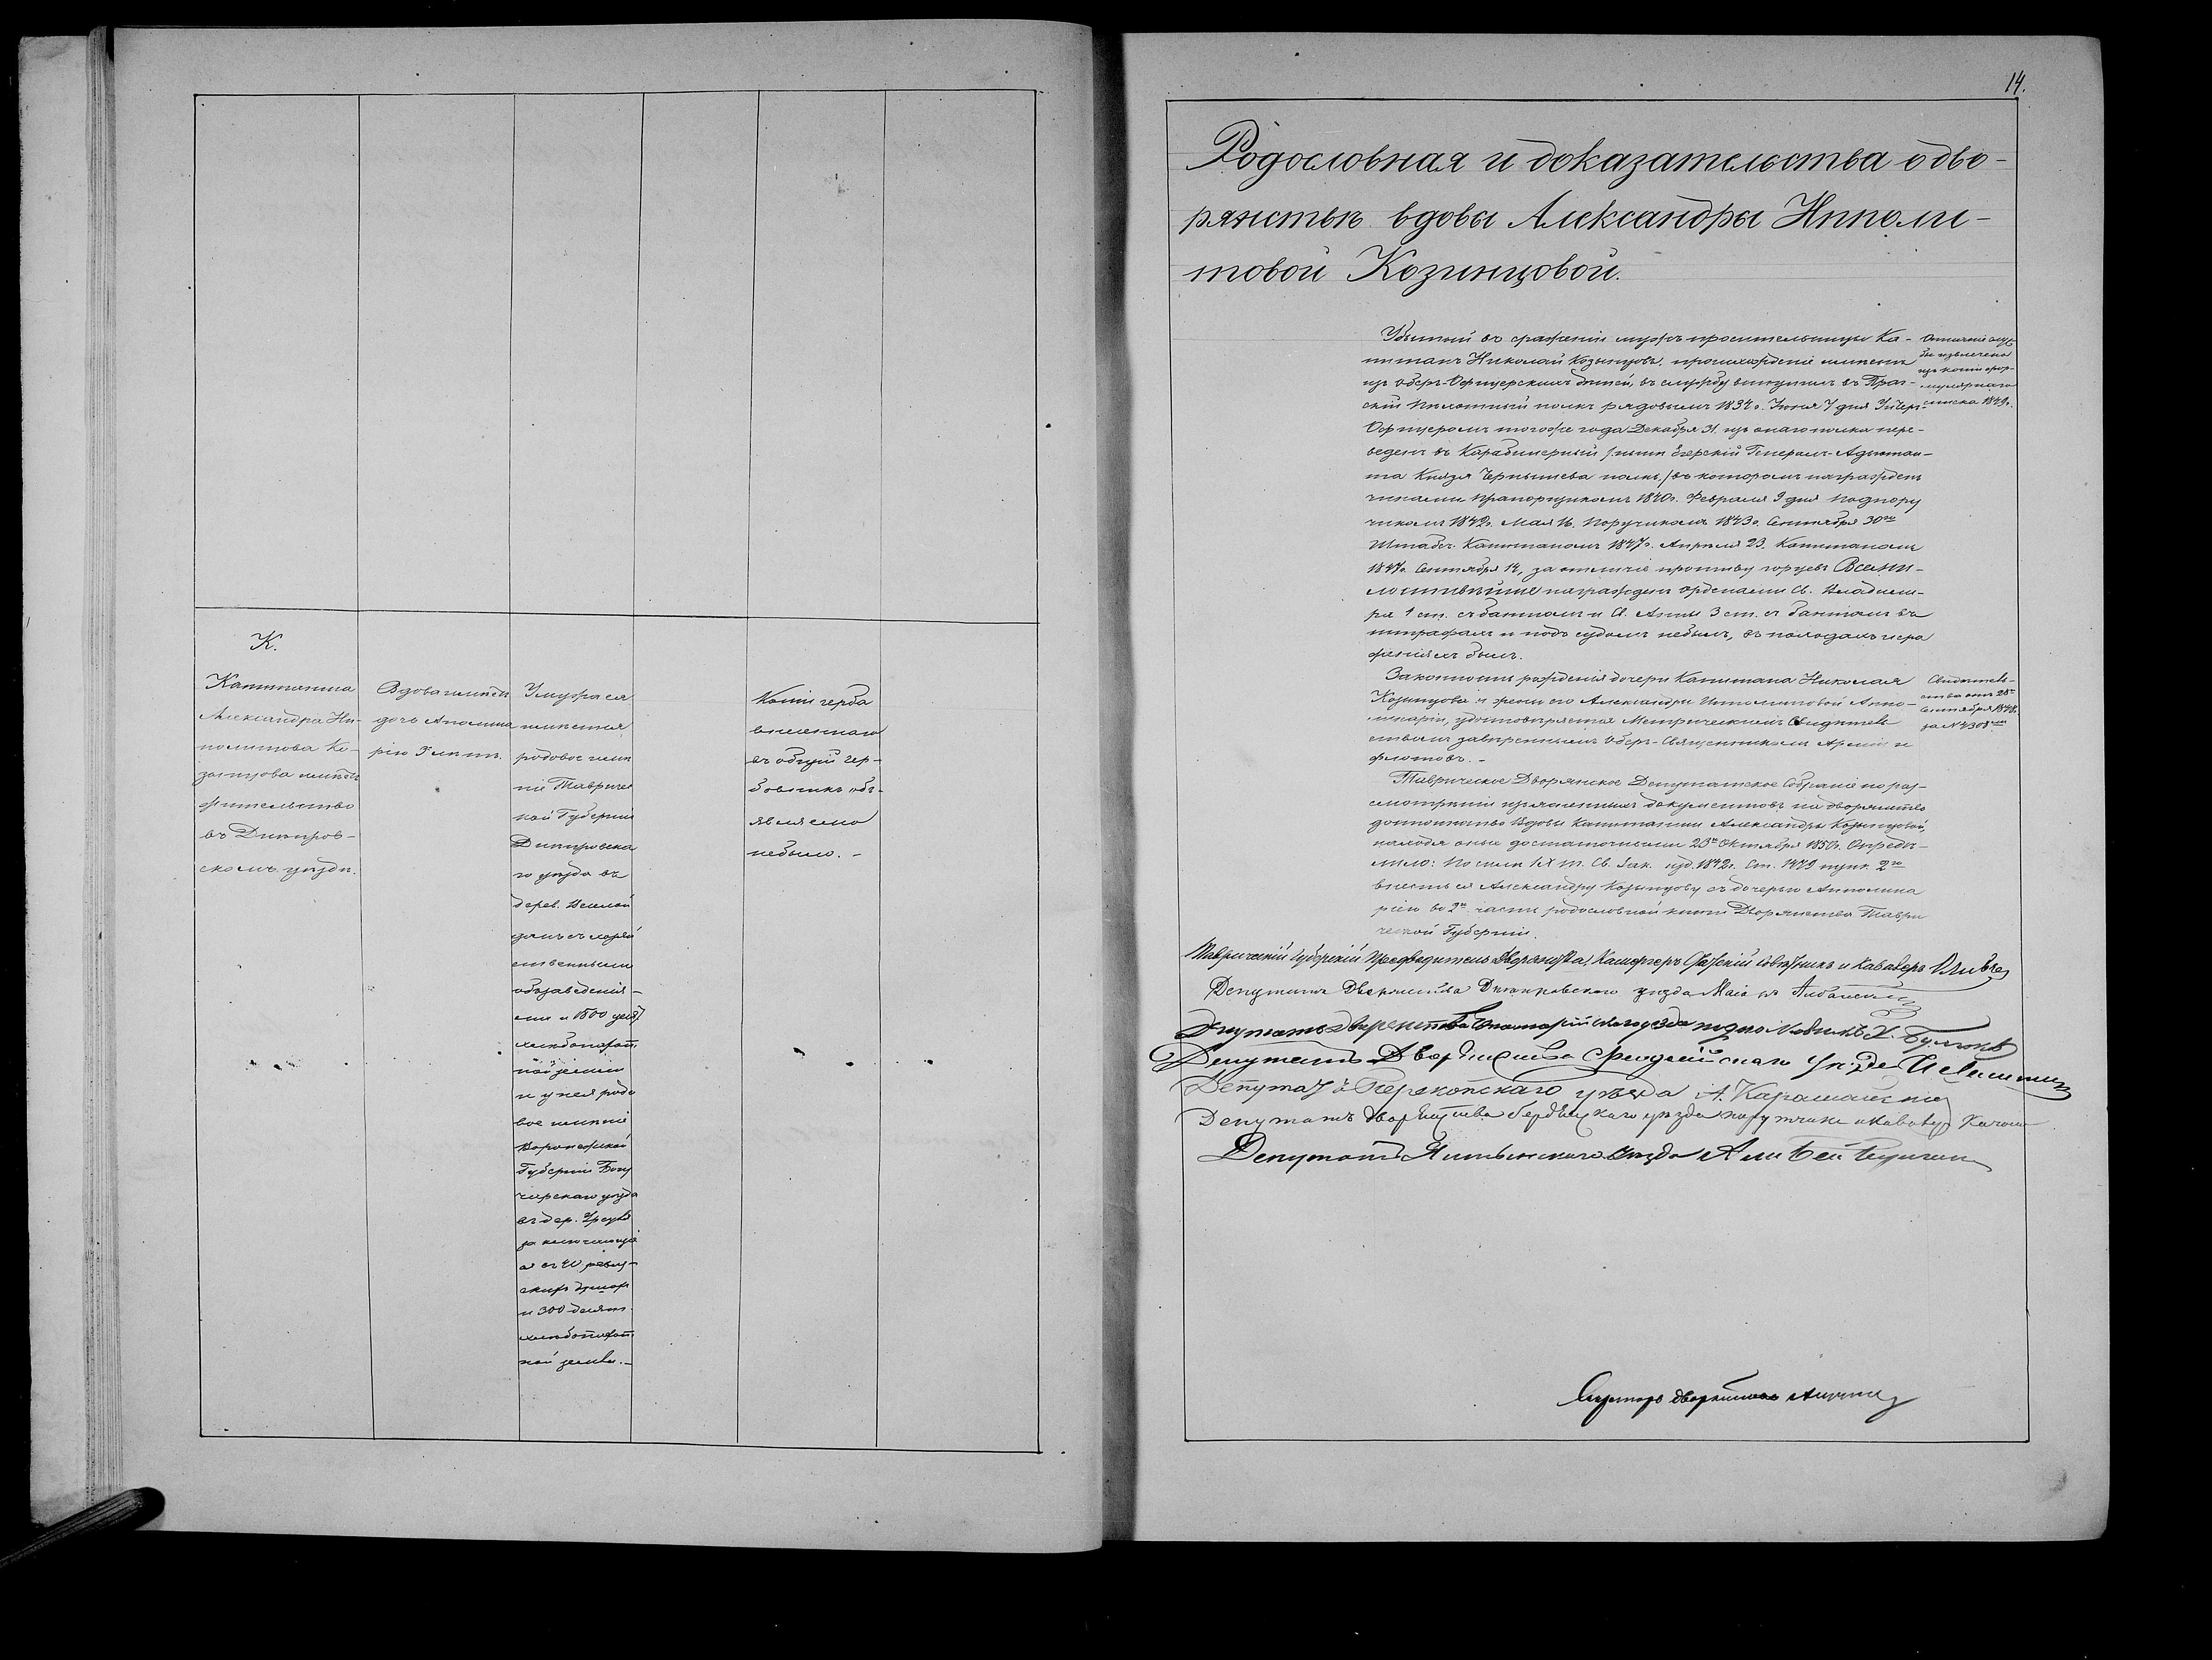 К.
Капитанша
Александра Ип-
политова Ко-
зынцова имѣетъ
жительство
въ Днѣпров-
скомъ уѣздѣ.
Вдова имѣетъ
дочь Аполлина
рію 3 лѣтъ.
У мужа ея
имѣется
родовое имѣ
ніе Тавричес
кой Губерніи
Днѣпровска
го уѣзда въ
дерев.
съ хозяй
ственнымъ
обзаведені-
емъ и 1800 десят.
хлѣбопахат.
ной земли
и у нея родо
вое имѣніе
Воронежской
Губерніи Богу
чарскаго уѣзда
въ дер.
заключающе
ся въ 40 ревиз-
скихъ душахъ
и 300 десят.
хлѣбопахат.
ной земли.-
Копіи герба
внесеннаго
въ общій гер-
бовникъ объ-
явлено
небыло.-
14.
Родословная и доказательства о дво-
рянствѣ вдовы Александры Ипполи-
товой Козинцовой.
Убитый въ сраженіи мужъ просительницы Ка-
питанъ Николай Козынцовъ, происхожденіе имѣетъ
изъ Оберъ-Офицерскихъ дѣтей, въ службу вступилъ въ Праг-
скій Пѣхотный полкъ рядовымъ 1834 г. Іюня 7 дня Унтеръ-
Офицеромъ тогоже года Декабря 31. изъ онаго полка пере-
веденъ въ Карабинерный /нынѣ Егерскій Генералъ-Адъютан-
та Князя Чернышева полкъ/ въ которомъ награжденъ
чинами Прапорщикомъ 1840 г. Февраля 9 дня Подпору
чикомъ 1842 г. Мая 16. Поручикомъ 1843 г. Сентября 30го
Штабсъ-Капитаномъ 1847 г. Апрѣля 23. Капитаномъ
1847 г. Сентября 14, за отличіе противу горцевъ Всеми-
лостивѣйше награжденъ орденами Св. Владими-
ра ст. съ бантомъ и Св. Анны 3 ст. съ бантомъ въ
штрафахъ и подъ судомъ небылъ, въ походахъ и сра
женіяхъ былъ.
Отличіе служ
бы извлечено
изъ копіи фор-
мулярнаго
списка 1849 г.
Законность рожденія дочери Капитана Николая
Козынцова и жены его Александры Ипполитовой Аппо-
линаріи, удостовѣряется Метрическимъ Свидѣтель
ствомъ завѣреннымъ Оберъ-Священникомъ Арміи и
флотовъ.-
Свидѣтель-
ство отъ 28го
Сентября 1848 г.
за №
Таврическое Дворянское Депутатское Собраніе по раз-
смотрѣніи приложенныхъ документовъ на дворянство
достоинство вдовы Капитанши Александры Козынцовой,
находя оныя достаточными 23го Октября 1850 г. Опредѣ-
лило: По силѣ IX т. Св. Зак. изд. 1842 г. Ст. 1479 пунк. 2го
внесть ея Александру Козынцову съ дочерью Апполина
ріею во 2ю часть родословной книги Дворянства Таври
ческой Губерніи.
Таврическій Губернскій Предводитель Дворянства, Камергеръ Статскій Совѣтникъ и Кавалеръ
Депутатъ Дворянства Днѣпровскаго уѣзда Маіоръ
Депутатъ Дворянства Евпаторійскаго уѣзда
Депутатъ Дворянства Феодосійскаго Уѣзда
Депутатъ Перекопскаго уѣзда А.
Депутатъ Дворянства Бердянскаго уѣзда поручикъ и Кавалеръ
Депутатъ Ялтинскаго Уѣзда Али Бей
Секретарь дворянства